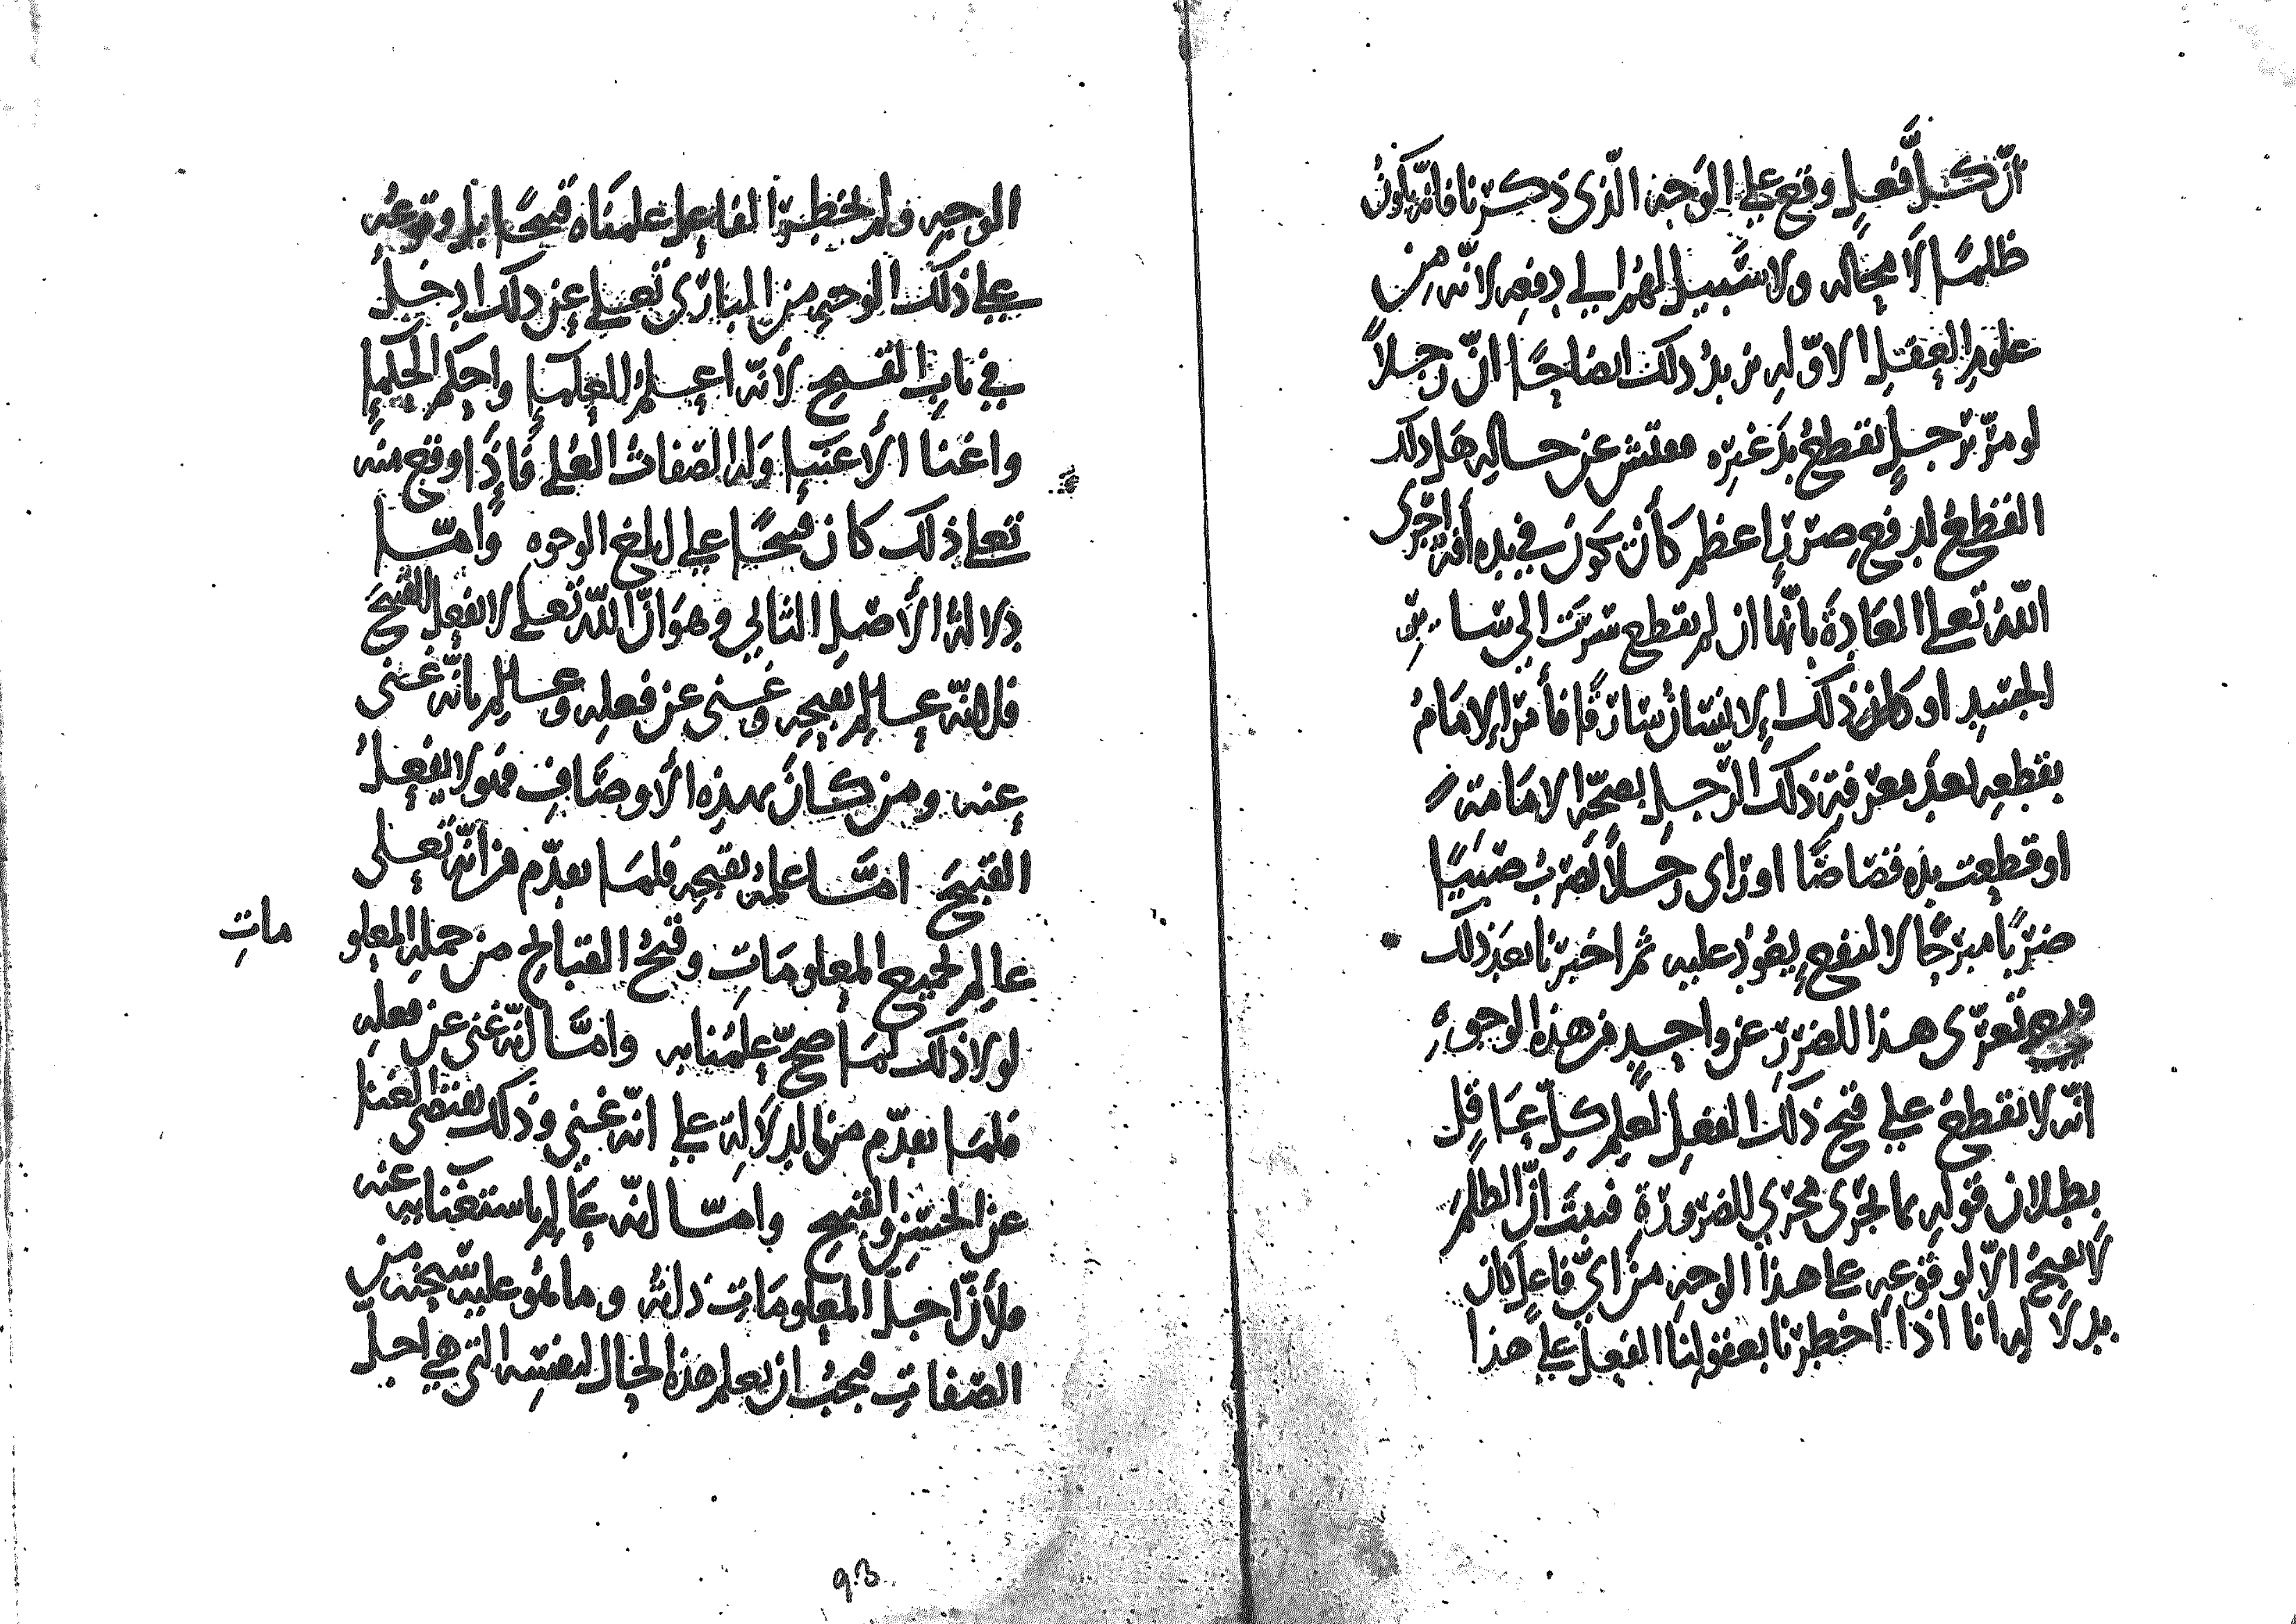 أنّ كلّ فعلٍ وقع على الوجه الذى ذكرنا فانّه يكون
ظلمًا لا محاله ولا سبيل لهم الى دفعه لانّه من
علوم العقل الاوّله يزيدُ ذلك ايضاحًا انّ رجلاً
لو مرّ برجلٍ يقطع يد غيره ففتش عن حاله هل ذلك
القطع لدفع ضررٍ اعظم كأن تكون في يده آفة اجرى
اللهُ تعلى العادة بأنّها ان لم يقطع سرت الى سائر
الجسد او كان ذلك الانسان سارقًا فأمر الامامُ
بقطعه بعد معرفة ذلك الرّجل بصحّة الامامة
او قطعت يده قصاصًا او رأى رجلاً يضرب صبيًا
ضربًا مبرحًا لا لنفع يعود عليه ثم اخبرنا بعد ذلك
وبعد تعرّى هذا الضرر عن واحدٍ من هذه الوجوهِ
انّه لا نقطع على قبح ذلك الفعل لعلم كلّ عاقل
بطلان قوله بما يجرى مجرى الضرورة فثبت انّ الظلم
لا يقبح الّا لوقوعه على هذا الوجه من أيّ فاعل كان
بدلالة انا اذا اخطرنا بعقولنا الفعل على هذا
الوجه ولم يخطر الفاعل علمناه قبيحًا بل وقوعه
على ذلك الوجه من البارى تعلى عن ذلك ادخل
في باب القبيح لأنّه اعلم العلماء واحكم الحكماء
واغنا الأغنياء وله الصفات العُلى فإذا وقع منه
تعلى ذلك كان قبيحًا على ابلغ الوجوه وامّا
دلالة الأصل الثاني وهو انّ الله تعلى لا يفعل القبيح
فلانّه عالم بقبحه وغنى عن فعله وعالم بأنّه غنى
عنه ومن كان بهذه الأوصاف فهو لا يفعل
القبيح امّا علمه بقبحه فلما تقدّم من انّه تعلى
عالم لجميع المعلومات وقبحُ القبائح من جملة المعلومات
لولا ذلك لما صحّ علمنا به وامّا انّه غنى عن فعله
فلما تقدّم من الدلالة على انّه غنى وذلك يقتضى الغنا
عن الحسن والقبيح وامّا انّه عالم باستغنائه عنه
فلأنّ اجلّ المعلومات ذاته وما هو عليه سبحنه من
الصّفات فيجب ان يعلم هذه الحال لنفسه التى هي اجل
93